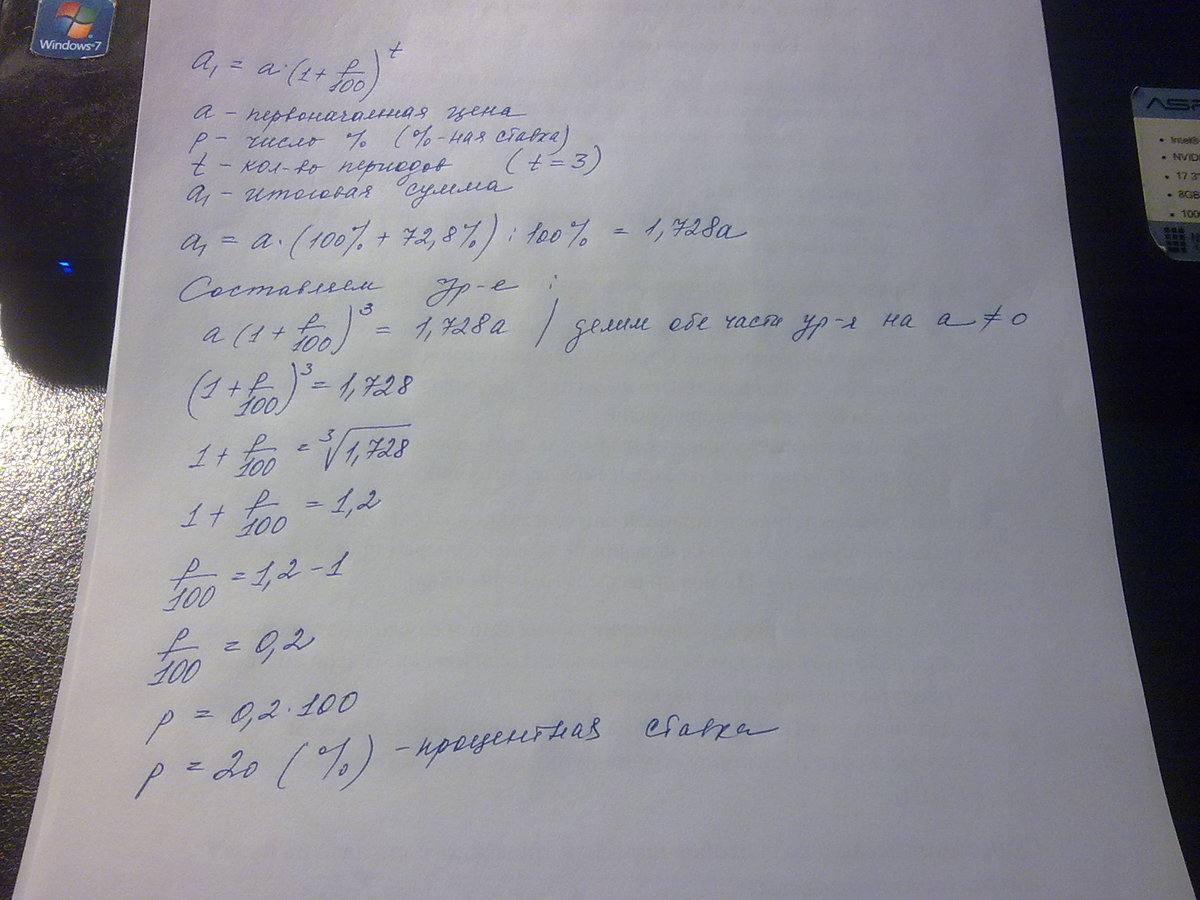 Windows 7
a₁ = a·(1 + p/100)^t
a – первоначальная цена
p – число % (%-ная ставка)
t – кол-во периодов (t = 3)
a₁ – итоговая сумма
a₁ = a·(100% + 72,8%) : 100% = 1,728a
Составляем ур-е :
a (1 + p/100)³ = 1,728a / делим обе части ур-я на a ≠ 0
(1 + p/100)³ = 1,728
1 + p/100 = ³√1,728
1 + p/100 = 1,2
p/100 = 1,2 – 1
p/100 = 0,2
p = 0,2·100
p = 20 (%) – процентная ставка
Intel®
NVID
17.3
8GB